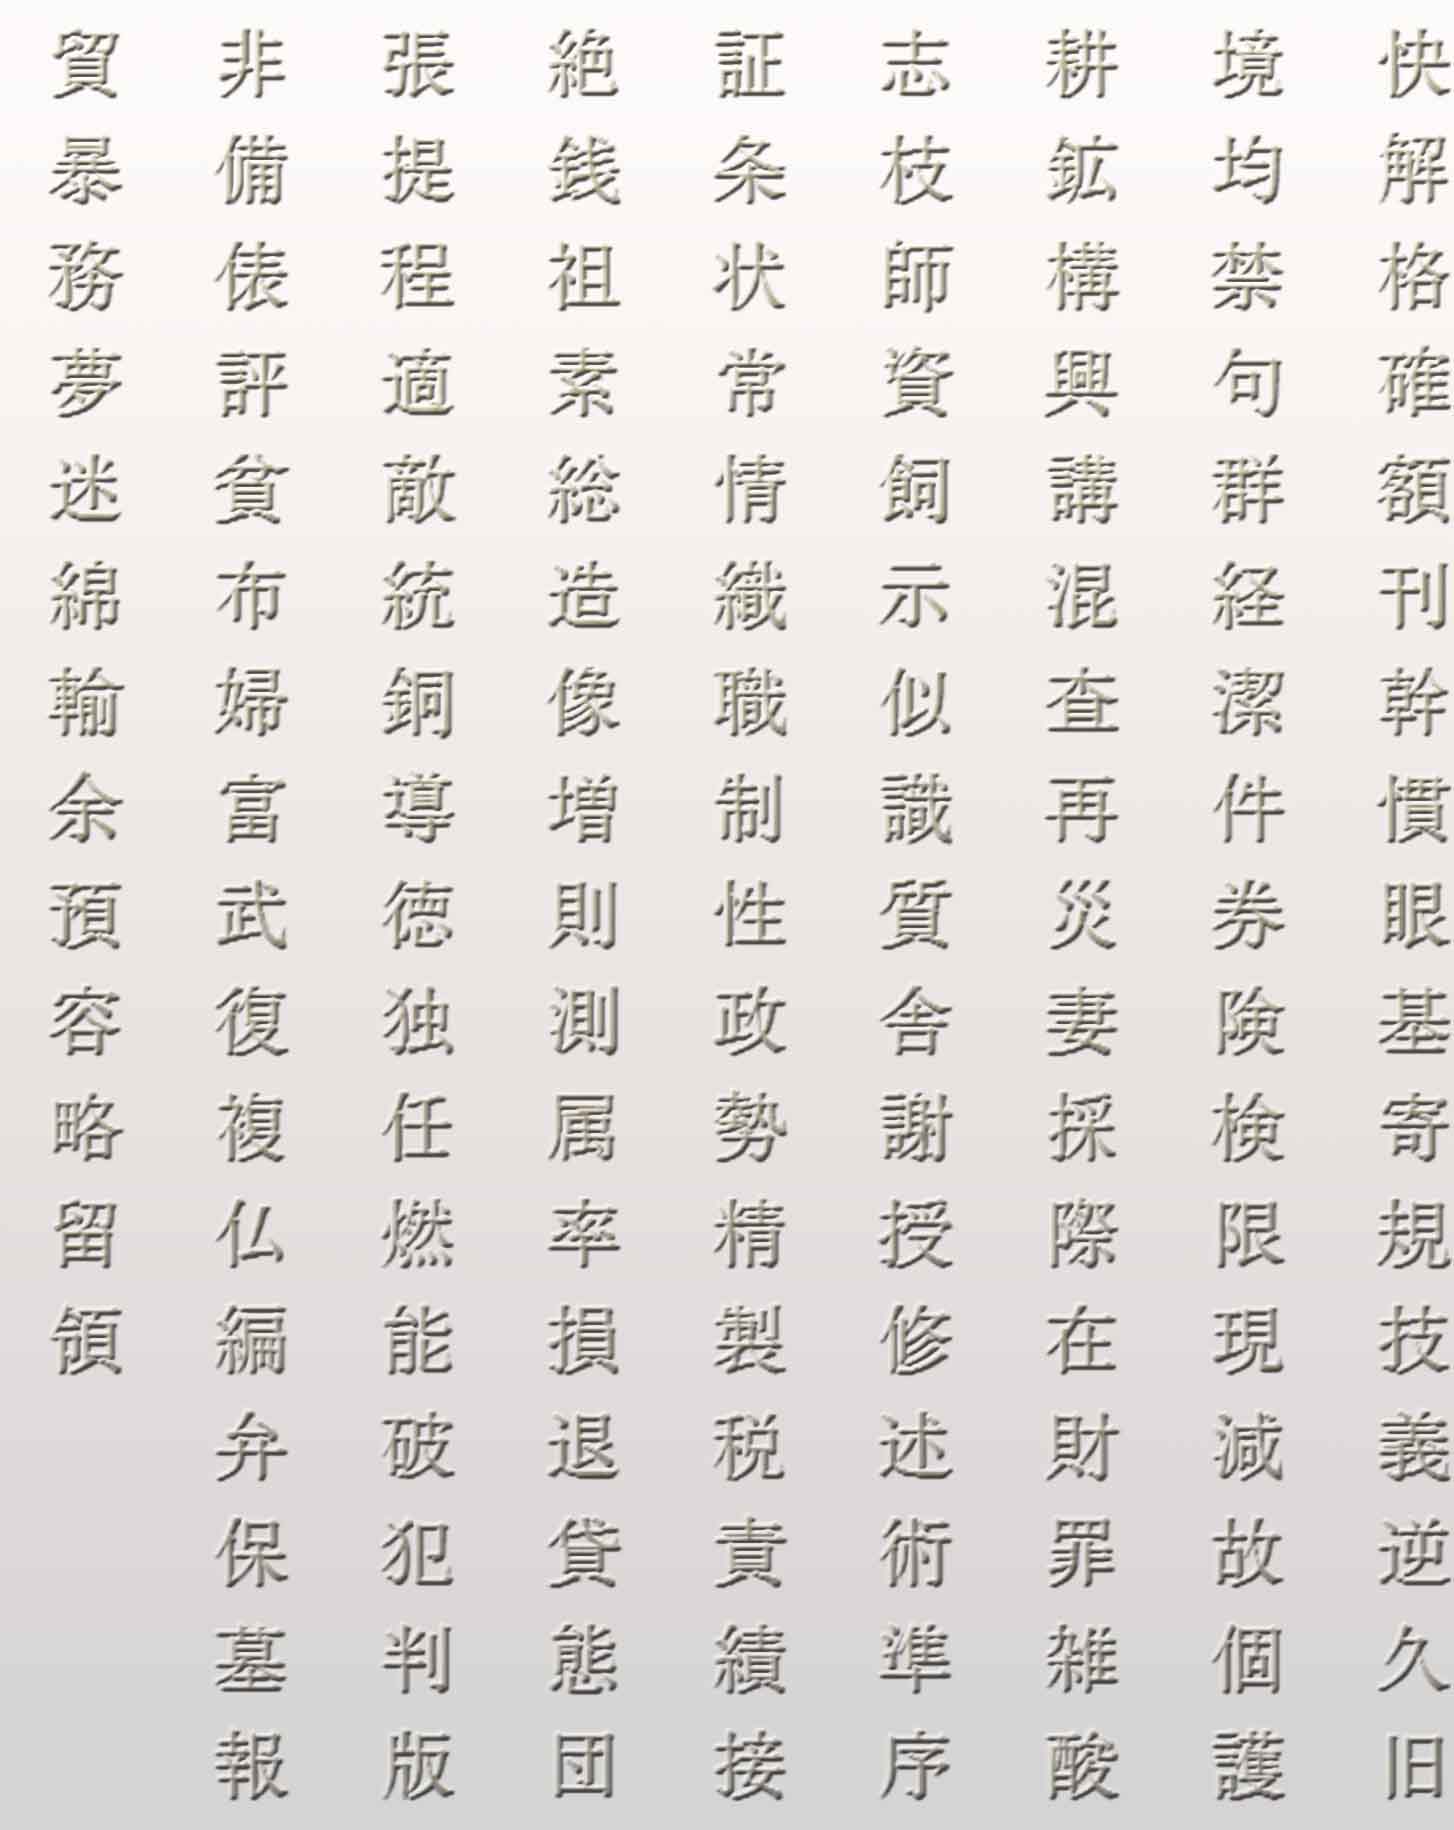 快解格確額刊幹慣眼基寄規技義逆久旧
境均禁句群経潔件券険検限現減故個護
耕鉱構興講混査再災妻採際在財罪雑酸
志枝師資飼示似識質舎謝授修述術準序
証条状常情織職制性政勢精製税責績接
絶銭祖素総造像増則測属率損退貸態団
張提程適敵統銅導徳独任燃能破犯判版
非備俵評貧布婦富武復複仏編弁保墓報
貿暴務夢迷綿輸余預容略留領